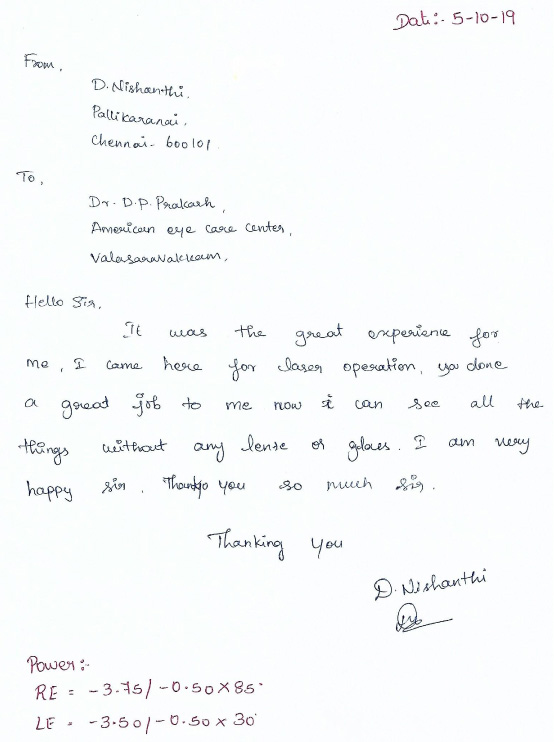 Date:- 5-10-19
From,
D. Nishanthi.
Pallikaranai,
Chennai- 600101
To,
Dr. D.P. Prakash,
American eye care center,
Valasaravakkam.
Hello Sir,
It was the great experience for
me, I came here for laser operation, ya done
a great job to me now i can see all the
things without any lense or glaces. I am very
happy sir. Thank you so much sir.
Thanking you
D. Nishanthi
Power:-
RE = -3.75/-0.50X85°
LE = -3.50/-0.50x30°